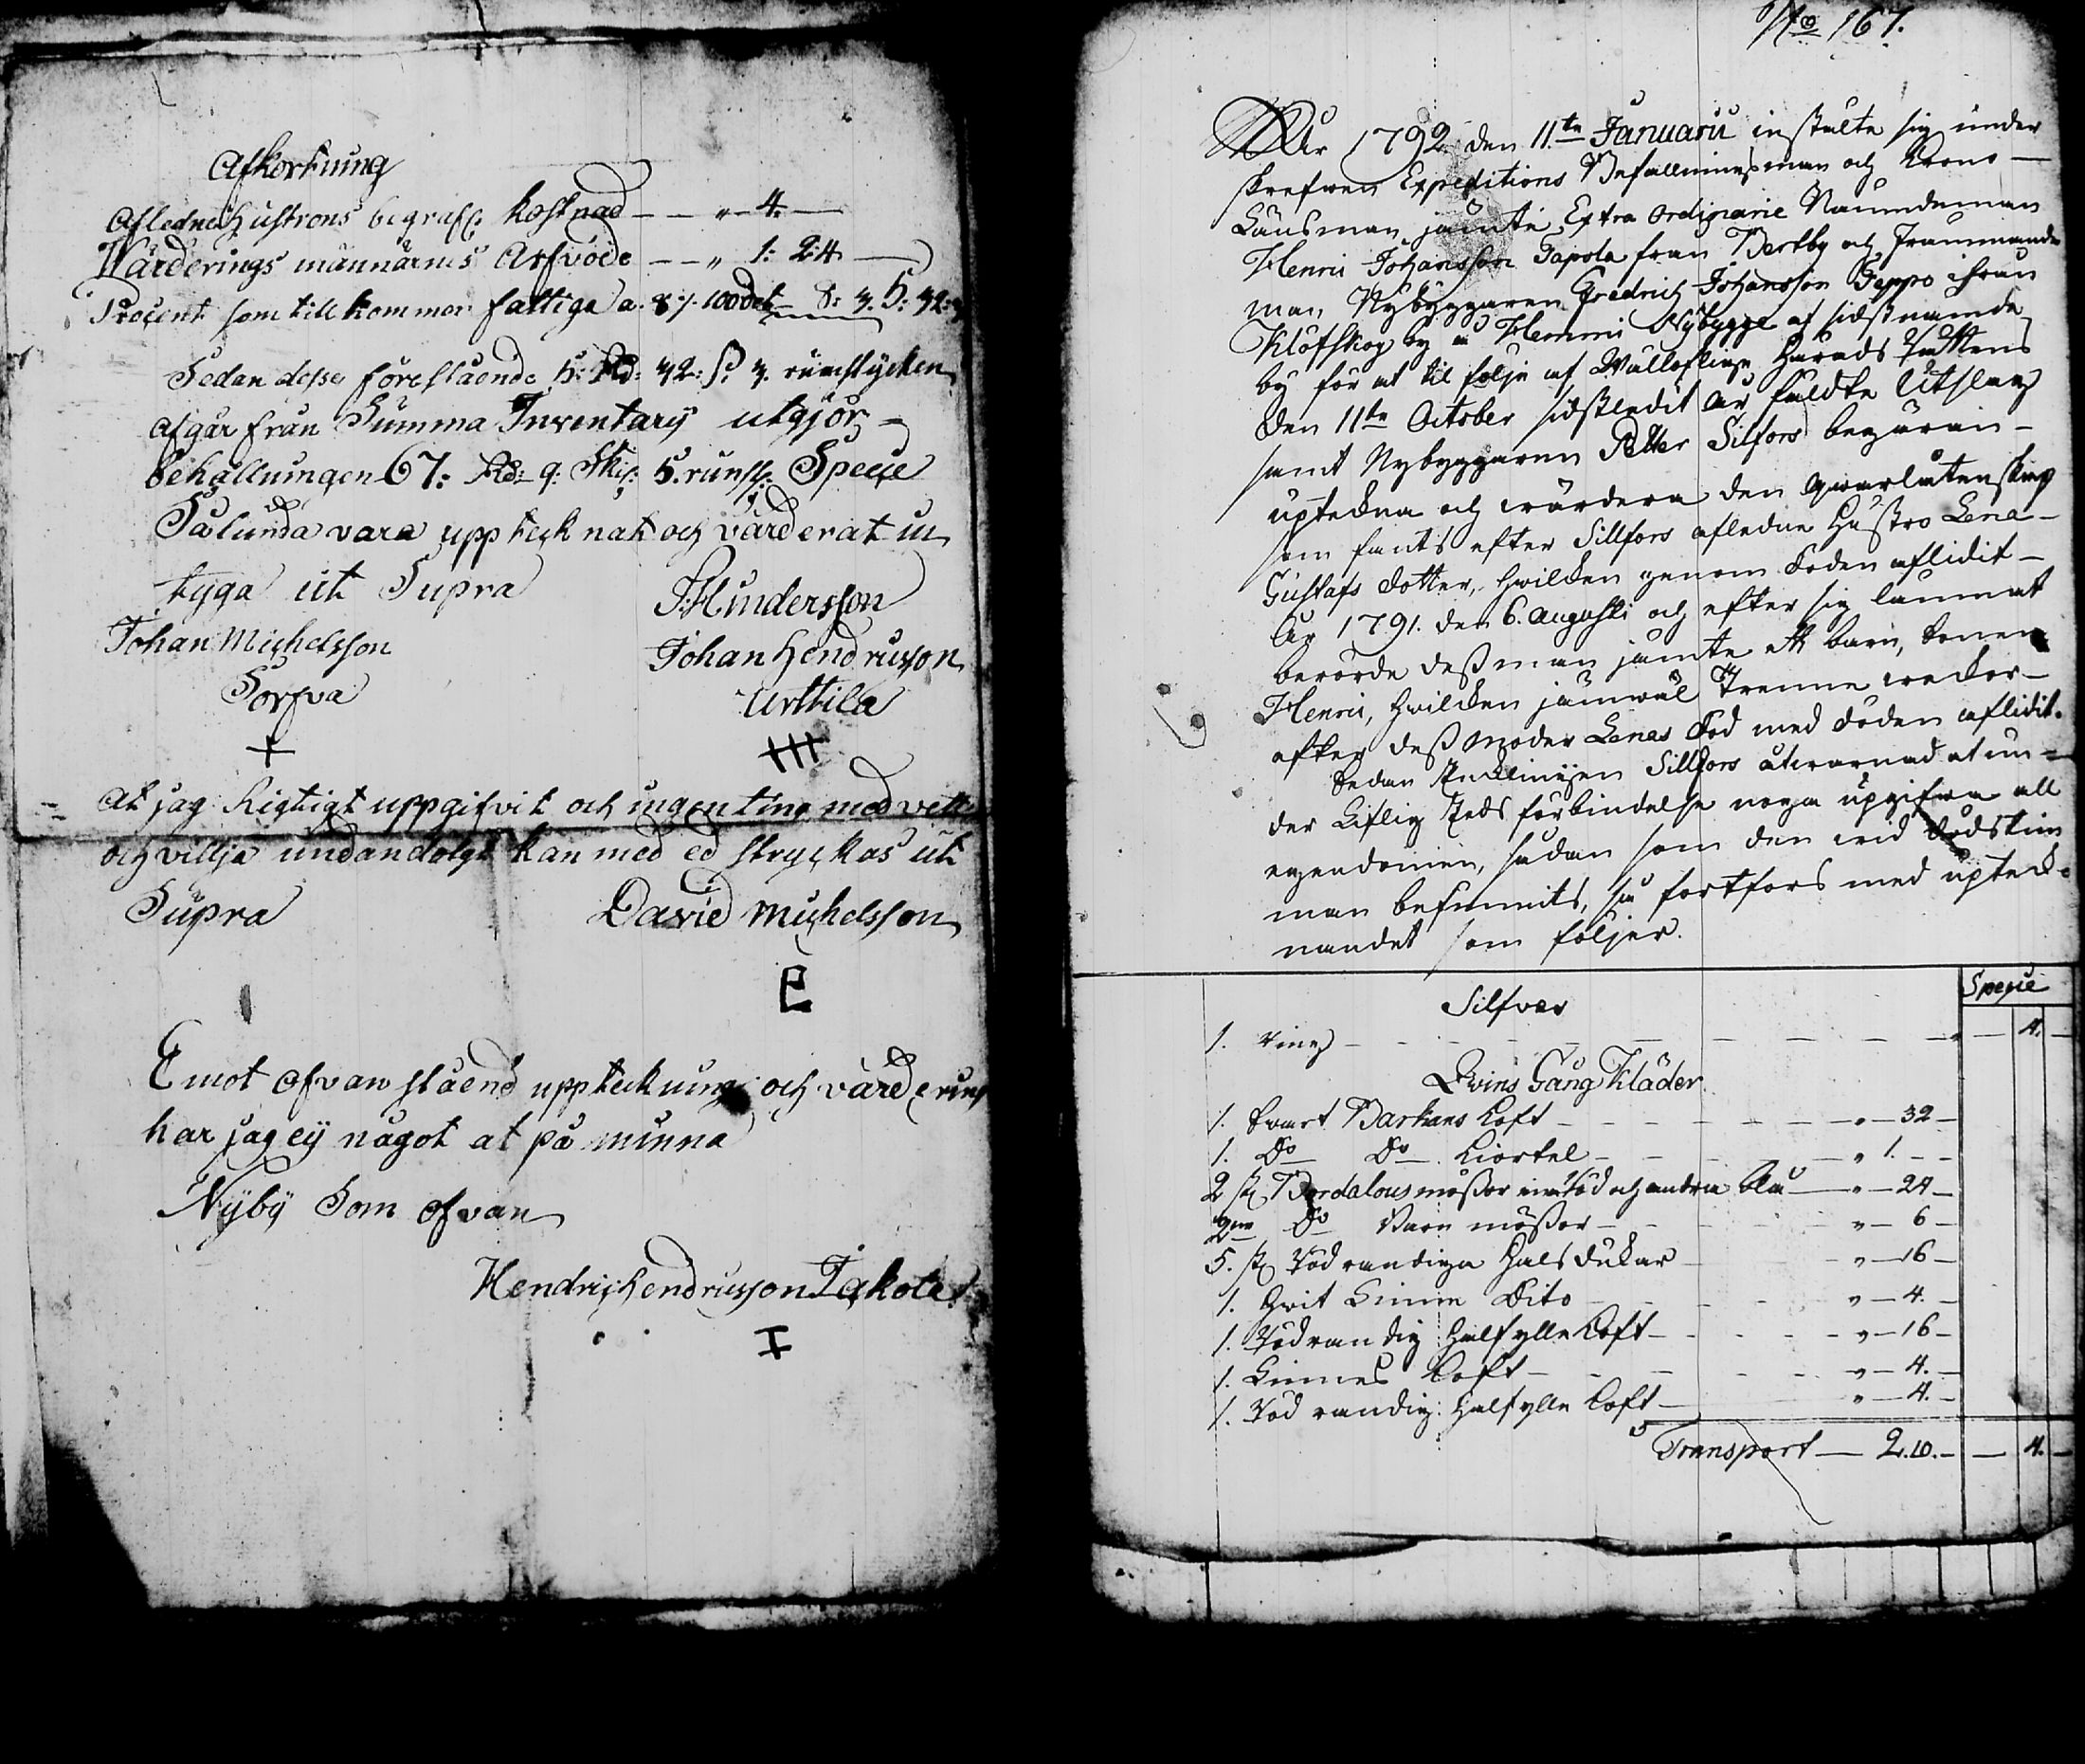 Afkortning
Afledne hustrons begrafs: kostnad — — „ 4. —
Värderings männärnes Arfvode — — „ 1: 24 —
Procent som tillkommer fattige a. 8/. 100det
Sedan desse föreslående 5: Rd: 32: s. 3. runstycken
afgår från Summa Inventarÿ utgjör
behållningen 67: Rd: 9: Skil: 5. runst: Specie
Sålunda vara uppteknat och värderat in
tÿga ut Supra
J: Hindersson
Johan Michelsson
Johan Hendricsson
Sorfva
Urttila
At jag Rigtigt uppgifvit och ingenting med vett
och villja undandolgt kan med ed stryckas ut
Supra
David Michelsson
Emot ofvan stående uppteckning och värdering
har jag eÿ något at på minna
Nÿbÿ Som ofvan
Hendric Hendricsson Jakola
No 167.
Åhr 1792 den 11te Januarii instälte sig under
skrefwen Expeditions Befallningsman och Krono
Länsman jämte Extra Ordinarie Nämndeman
Henric Johansson Papola från Bertby och främmande
man, Nybyggaren Fredrich Johansson Jeppo ifrån
Klöfskog by å Hemmi Nybygge af sidstnämde
by för at til följe af Wälloflige Härads Rättens
den 11te October sidstledit år fäldte Utslag
samt Nybyggaren Petter Silfors begäran
uptekna och wärdera den qwarlåtenskap
som fants efter Sillfors afledne Hustro Lena
Gustafs dotter, hwilken genom döden aflidit
År 1791. den 6. Augusti och efter sig lämnat
berörde dess man jämte ett barn, Sonen
Henric, hwilken jämwäl Trenne weckor
efter dess Moder Lenas död med döden aflidit.
Sedan Enklingen Sillfors åtwarnad at un-
der Liflig Eds förbindelse noga upgifwa all
egendomen, sådan som den wid dödstim
man befunnits, så fortfors med upteck-
nandet som följer.
Specie
Silfver
1. Ring — — 4. —
Qvins Gång Kläder
1. Svart Barkans Koft — „ — 32 —
1. Do Do Kiortel — „ 1. — —
2 st Bordalous mössor en röd och andra blå — „ — 24 —
2ne Do Barn mössor — „ — 6 —
5. st Röd randiga Halsdukar „ — 16 —
1. Hvit Linne Dito „ — 4. —
1. Rödrandig Halfylle Koft — „ — 16 —
1. Linnes Koft — „ — 4. —
1. Röd randig Halfylle Koft — „ — 4. —
Transport — 2.10. — — 4. —